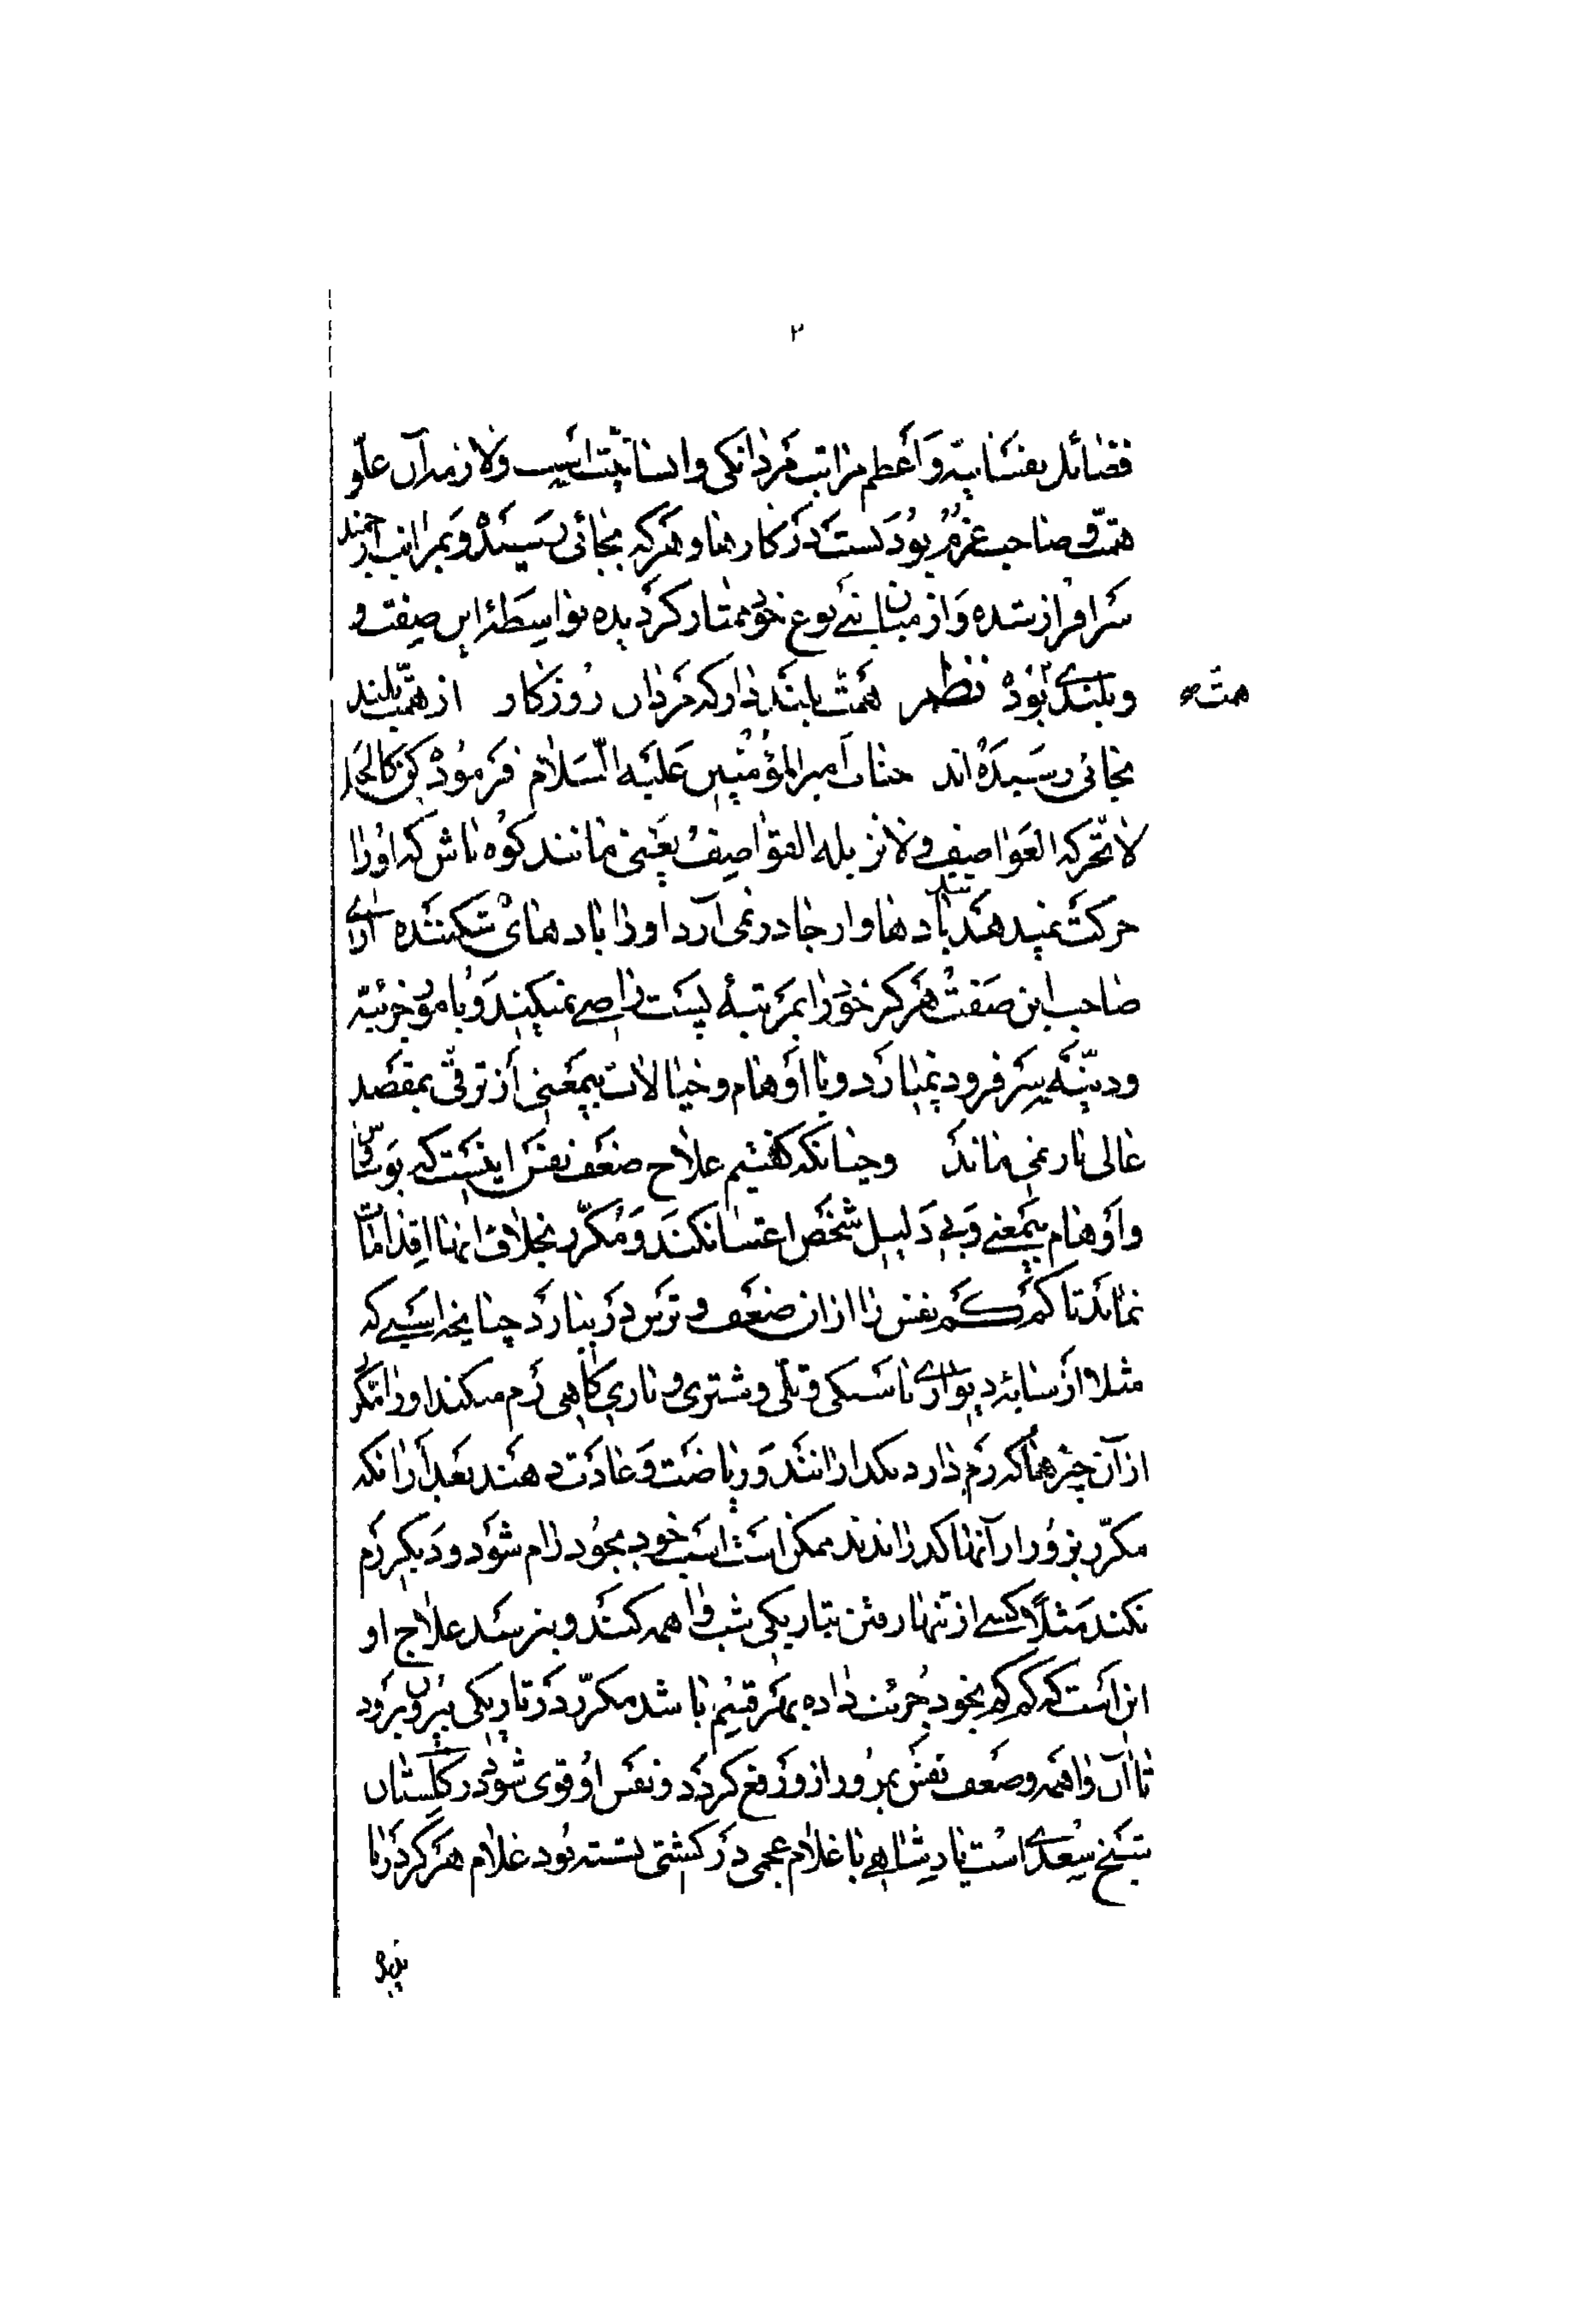 ۲
فضائل نفسانیّه و اعظم مراتب مردانکی و انسانیّت است و لازمهٔ آن علوّ
همّت و صاحب عزم بودنست در کارها و هرکه بجائی رسیده و بمراتب ارجمند
سرافراز شده و از میان ابنای نوع خود ممتاز کردیده بواسطهٔ این صفت و
و بلندی بوده نظم همّت بلند دار که مردان روزکار از همّت بلند
همّت صح
بجائی رسیده‌اند جناب امیر المؤمنین علیه السّلام فرموده کن کالجبل
لا تحرّکه العواصف و لا تزیله القواصف یعنی مانند کوه باش که او را
حرکت نمیدهند تند بادها و از جا در نمی‌آرد او را بادهای شکننده آرای
صاحب این صفت هرکز خود را بمرتبهٔ پست راضی نمیکند و بامور جزئیّه
و دنیّه سر فرود نمیارد و با اوهام و خیالات بیمعنی از ترقّی بمقصد
عالی باز نمی‌ماند و چنانکه کفتیم علاج ضعف نفس اینست که بوساوس
و اوهام بیمعنی و بی دلیل شخص اعتنا نکند و مکرّر بخلاف انها اقدامات
نماید تا کم کم نفس را از ان ضعف و ترس در بیارد چنانچه اسبی که
مثلا از سایهٔ دیواری یا سنکی و تلّی و شتری و تاریکاهی رم میکند او را مکرّر
از آن چیزها که رم دارد بکذارانند و ریاضت و عادت دهند بعد از انکه
مکرّر بزور از آنها کذراندند ممکن است اسب خود بخود رام شود و دیکر رم
نکند مثلا کسی از تنها رفتن بتاریکی شب واهمه کند و بترسد علاج او
این است که کم کم بخود جرئت داده بهر قسم باشد مکرّر در تاریکی بیرون برود
تا آن واهمه و ضعف نفس بمرور از او رفع کردد و نفس او قوی شود در کلستان
شیخ سعدی است پادشاهی با غلام عجمی در کشتی نشسته بود غلام هرکز دریا
ندیده